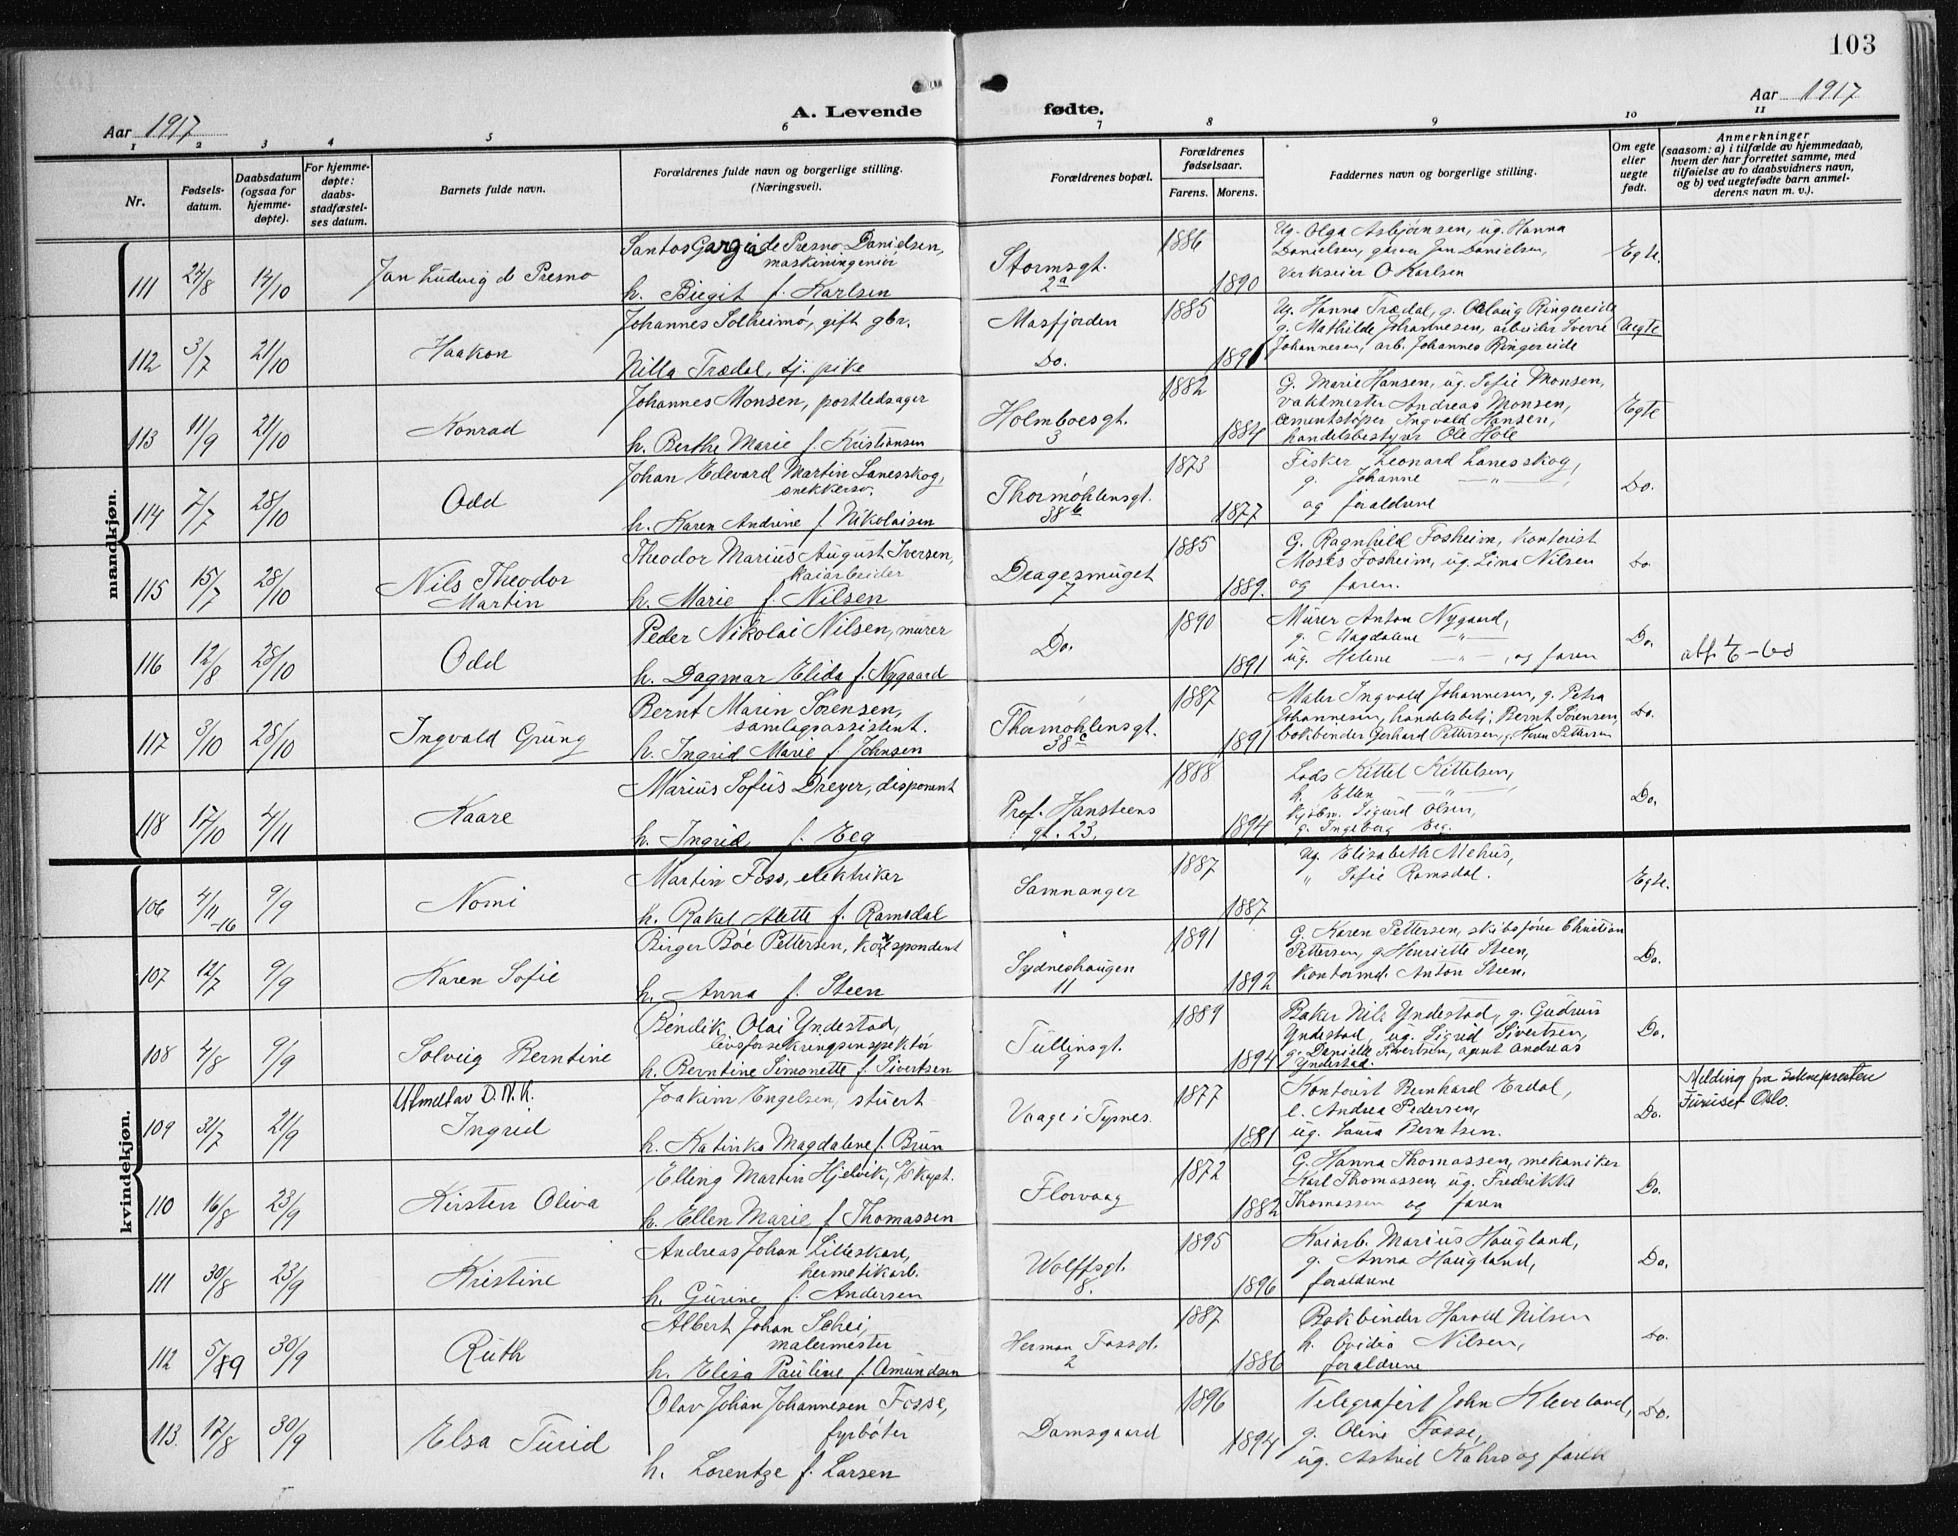 103
Aar 1917
A. Levende fødte.
Aar 1917
1 2 3 4 5 6 7 8 9 10 11
Nr.
Fødsels-
datum.
Daabsdatum
(ogsaa for
hjemme-
døpte).
For hjemme-
døpte:
daabs-
stadfæstel-
ses datum.
Barnets fulde navn.
Forældrenes fulde navn og borgerlige stilling.
(Næringsvei).
Forældrenes bopæl.
Forældrenes
fødselsaar.
Farens. Morens.
Faddernes navn og borgerlige stilling.
Om egte
eller
uegte
født.
Anmerkninger
(saasom: a) i tilfælde av hjemmedaab,
hvem der har forrettet samme, med
tilføielse av to daabsvidners navn,
og b) ved uegtefødte barn anmel-
derens navn m. v.).
mandkjøn.
111 24/8 14/10 Jan Ludvig de Presno
Santos Gargia de Presno Danielsen,
maskiningeniør
h. Birgit f. Karlsen
Stormsgt.
2a
1886
1890
Ug. Olga Asbjørnsen, ug. Hanna
Danielsen, garver Jan Danielsen,
Verkseier O Karlsen
Egte.
112 3/7 21/10 Haakon
Johannes Solheim, gift gbr.
Nilla Trædal, tj. pike
Masfjorden
Do.
1885
1891
Ug. Hanna Trædal, g. Oslaug Ringereide
g. Mathilde Johannesen, arbeider Sverre
Johannesen, arb. Johannes Ringereide
Uegte
113 11/9 21/10 Konrad
Johannes Monsen, postledsager
h. Berthe Marie f. Kristiansen
Holmboesgt.
3
1882
1884
G. Marie Hansen, ug. Sofie Monsen,
vaktmester Andreas Monsen,
cementstøper Ingvald Hansen,
handelsbestyrer Ole Hole
Egte
114 7/7 28/10 Odd
Johan Edevard Martin Lanesskog,
snekkersv.
h. Karen Andrine f. Nikolaisen
Thormøhlensgt.
38b
1873
1877
Fisker Leonard Lanesskog,
g. Johanne — „ —
og forældrene
Do.
115 15/7 28/10 Nils Theodor
Martin
Theodor Marius August Iversen,
kaiarbeider
h. Marie f. Nilsen
Dragesmuget
7
1885
1889.
G. Ragnhild Fosheim, kontorist
Moses Fosheim, ug. Lina Nilsen
og faren.
Do
116 12/8 28/10 Odd
Peder Nikolai Nilsen, murer
h. Dagmar Elida f. Nygaard
Do.
1890
1891
Murer Anton Nygaard,
g. Magdalene — „ —
ug. Helene — „ —, og faren
Do.
117 3/10 28/10 Ingvald Grung
Bernt Marin Sørensen,
samlagsassistent.
h. Ingrid Marie f. Johnsen
Thormøhlensgt.
38c
1887
1891
Maler Ingvald Johannesen, g. Petra
Johannesen, handelsbetj. Bernt Sørensen,
bokbinder Gerhard Pettersen, g. Karen Pettersen
Do.
118 17/10 4/11 Kaare
Marius Sofus Dreyer, disponent
h. Ingrid f. Eeg
Prof. Hansteens
gt. 23.
1888
1894
Lods Kittel Kittelsen,
h. Ellen — „ —
kjøbm. Sigurd Olsen,
g. Ingeborg Eeg.
Do.
kvindekjøn.
106 4/11-16 9/9 Nomi
Martin Foss, elektriker
h. Rakel Alette f. Ramsdal
Samnanger
1887
1887
Ug. Elisabeth Mehus,
„ Sofie Ramsdal.
Egte.
107 12/7 9/9 Karen Sofie
Birger Bøe Pettersen, korrespondent
h. Anna f. Steen
Sydneshaugen
11
1891
1892
G. Karen Pettersen, skibsfører Christian
Pettersen, g. Henriette Steen,
kontormd. Anton Steen.
Do.
108 4/8 9/9 Solveig Berntine
Bendik Olai Yndestad,
livsforsekringsinspektør
h. Berntine Simonette f. Sivertsen
Tullinsgt.
9
1889
1894
Baker Nils Yndestad, g. Gudrun
Yndestad, ug. Sigrid Sivertsen,
g. Danielle Sivertsen, agent Andreas
Yndestad.
Do.
109 31/7 21/9 Utmeldt av D.N.K.
Ingrid
Joakim Engelsen, stuert
h. Katinka Magdalene f. Brun
Vaage i Tysnes.
1877
1881
Kontorist Bernhard Erdal,
e. Andrea Pedersen,
ug. Laura Berntsen.
Do.
Melding fra Soknepresten
Furuset Oslo.
110 16/8 23/9 Kirsten Oliva
Elling Martin Hjelvik, D/Skpt.
h. Ellen Marie f. Thomassen
Florvaag
1872
1882
G. Hanna Thomassen, mekaniker
Karl Thomassen, ug. Fredrikke
Thomassen og faren
Do.
111 30/8 23/9 Kristine
Andreas Johan Lilleskare,
hermetikarb.
h. Gurine f. Andersen
Wolffsgt.
8.
1895
1896
Kaiarb. Marius Haugland,
g. Anna Haugland,
forældrene
Do.
112 5/9 30/9 Ruth
Albert Johan Schei,
malermester
h. Elisa Pauline f. Amundsen
Herman Fossgt.
2
1887
1886
Bokbinder Harald Nilsen
h. Ovidia Nilsen,
forældrene
Do.
113. 17/8 30/9 Elsa Turid
Olav Johan Johannesen Fosse,
fyrbøter
h. Lorentze f. Larsen
Damsgaard
1896
1894
Telegrafist John Kleveland,
g. Oline Fosse,
ug. Astrid Kahrs og faren
Do.